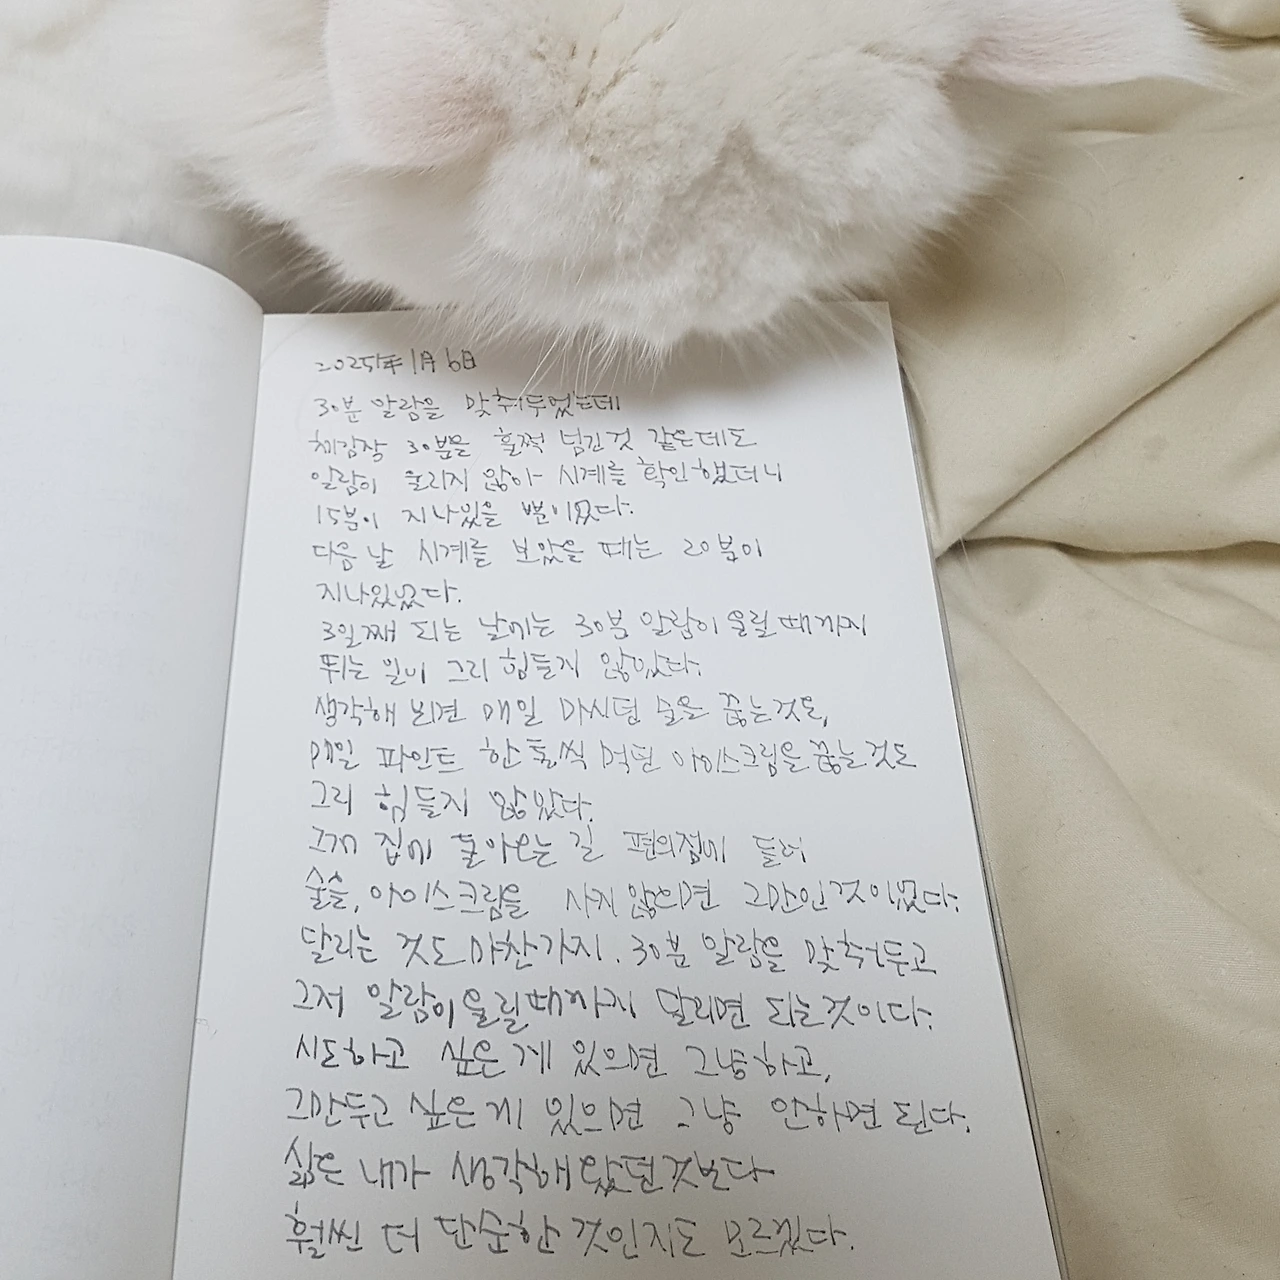 2025年 1月 6日
30분 알람을 맞춰두었는데
체감장 30분은 훌쩍 넘긴것 같은데도
알람이 울리지 않아 시계를 확인했더니
15분이 지나있을 뿐이었다.
다음 날 시계를 보았을 때는 20분이
지나있었다.
3일째 되는 날에는 30분 알람이 울릴때까지
뛰는 일이 그리 힘들지 않았다.
생각해 보면 매일 마시던 술을 끊는것도,
매일 파인트 한통씩 먹던 아이스크림을 끊는것도
그리 힘들지 않았다.
그게 집에 돌아오는 길 편의점에 들러
술을, 아이스크림을 사지 않으면 그만인것이었다.
달리는 것도 마찬가지. 30분 알람을 맞춰두고
그저 알람이 울릴때까지 달리면 되는것이다.
시도하고 싶은게 있으면 그냥하고,
그만두고 싶은게 있으면 그냥 안하면 된다.
삶은 내가 생각해왔던것보다
훨씬 더 단순한 것인지도 모르겠다.